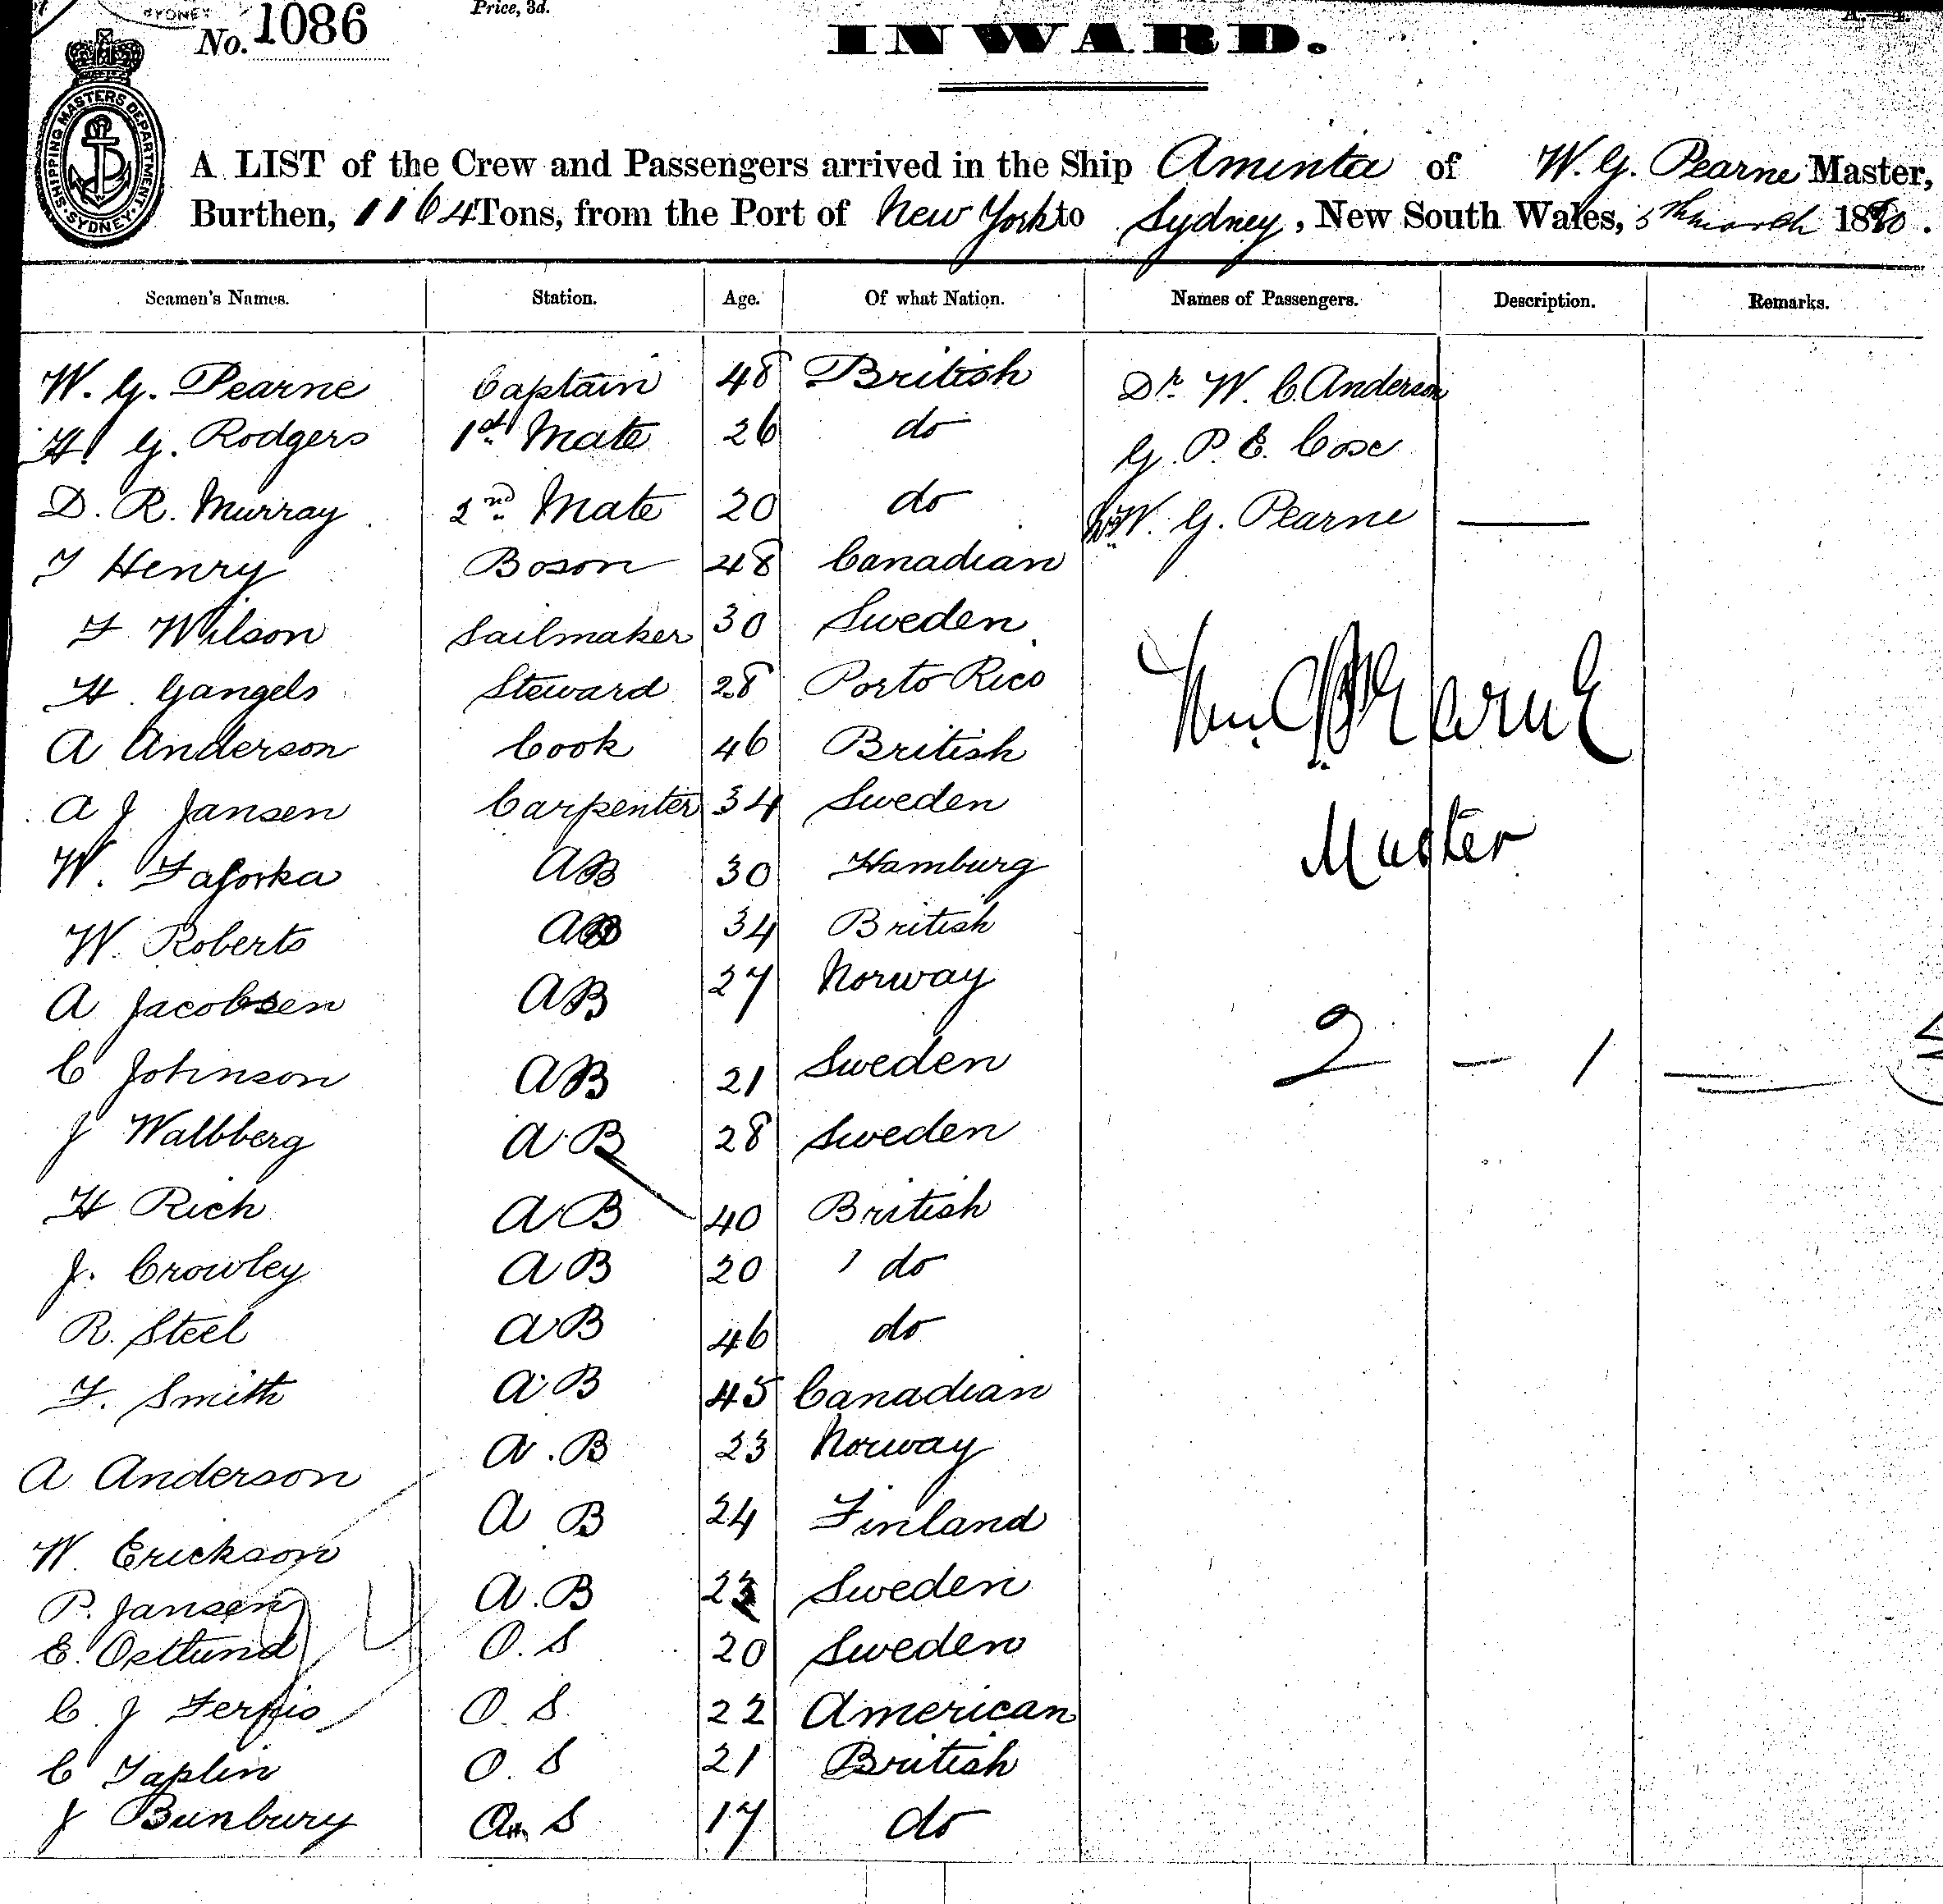 SYDNEY
No. 1086
Price, 3d.
INWARD.
SHIPPING MASTERS DEPARTMENT. SYDNEY.
A LIST of the Crew and Passengers arrived in the Ship Aminta of W. G. Pearne Master,
Burthen, 1164 Tons, from the Port of New York to Sydney, New South Wales, 5th March 1880.
Seamen's Names. Station. Age. Of what Nation. Names of Passengers. Description. Remarks.
W. G. Pearne Captain 48 British Dr. W. C. Anderson
H. G. Rodgers 1st Mate 26 do G. P. E. Cose
D. R. Murray 2nd Mate 20 do Mrs W. G. Pearne
J Henry Boson 48 Canadian
F Wilson Sailmaker 30 Sweden
H Gangels Steward 28 Porto Rico
Wm G Pearne
A Anderson Cook 46 British
A J Jansen Carpenter 34 Sweden
Master
W. AB 30 Hamburg
W. Roberts AB 34 British
A Jacobsen AB 27 Norway
C Johnson AB 21 Sweden 2 — 1
J Wallberg A.B 28 Sweden
H Rich A.B 40 British
J. Crowley A B 20 do
R. Steel A B 46 do
F. Smith A.B 45 Canadian
A Anderson A.B 23 Norway
W. Erickson A B 24 Finland
P. Jansen A.B 23 Sweden
E. Ostlund O.S 20 Sweden
C. J O.S. 22 American
C Taplin O.S 21 British
J Bunbury O S 17 do